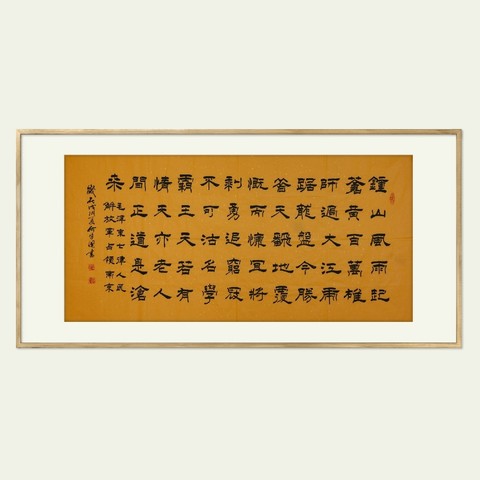 鐘山風雨起
蒼黄百萬雄
師過大江虎
踞龍盤今勝
昔天翻地覆
慨而慷宜將
剩勇追窮寇
不可沽名學
霸王天若有
情天亦老人
間正道是滄
桒
毛澤東七律人民
解放軍占領南京
書